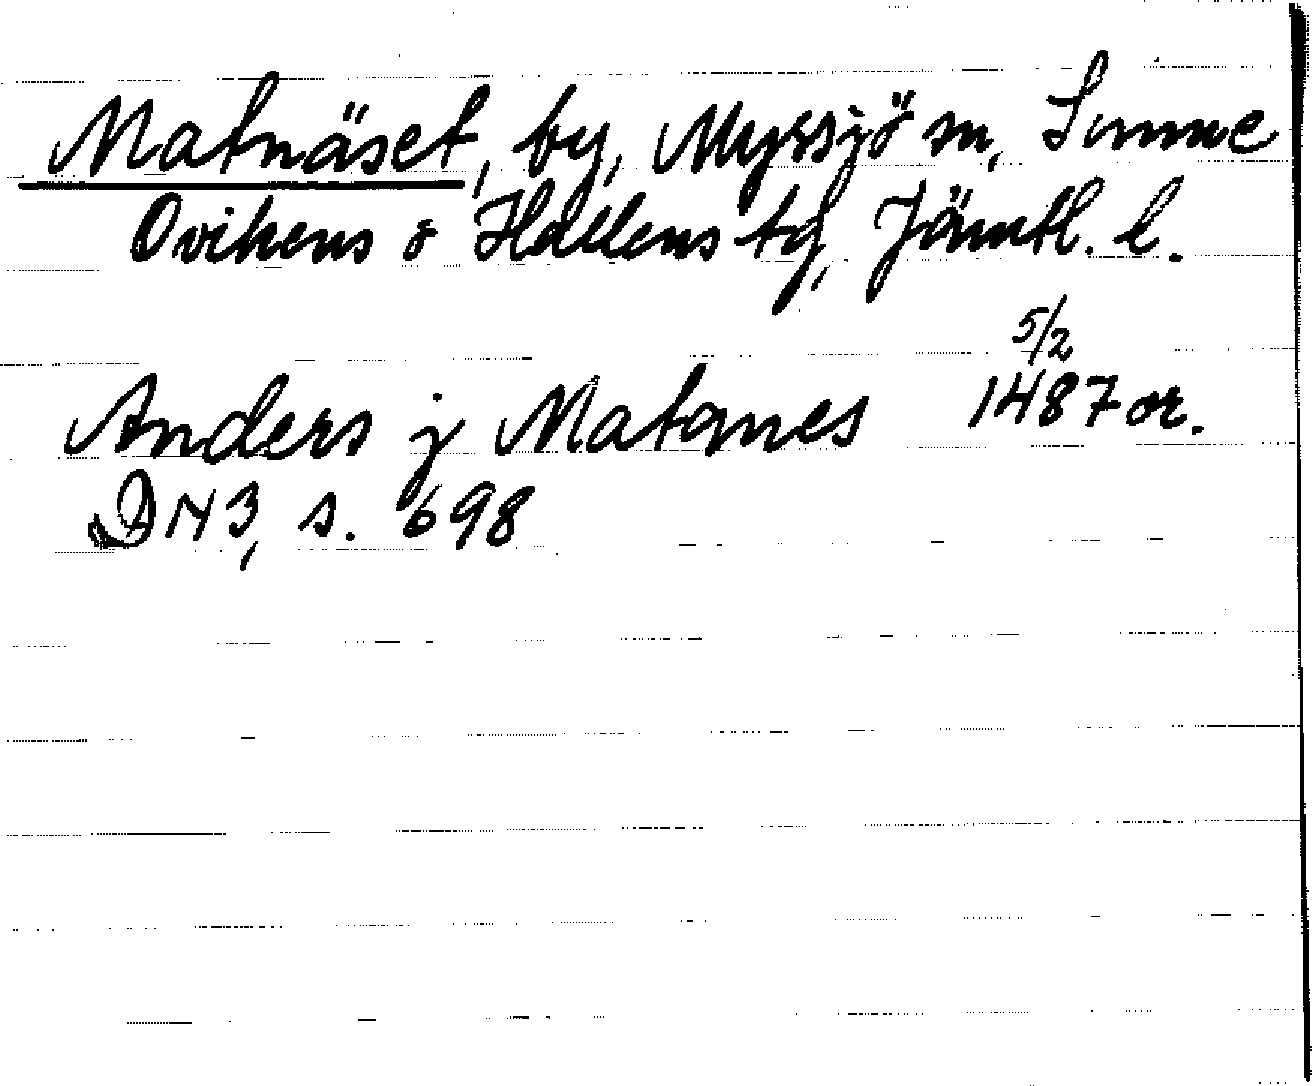 Matnäset, by, Myssjö sn, Sunne
Ovikens o Hallens tg, Jämtl. l.
5/2
Anders j Matanes 1487 or.
DN 3, s. 698